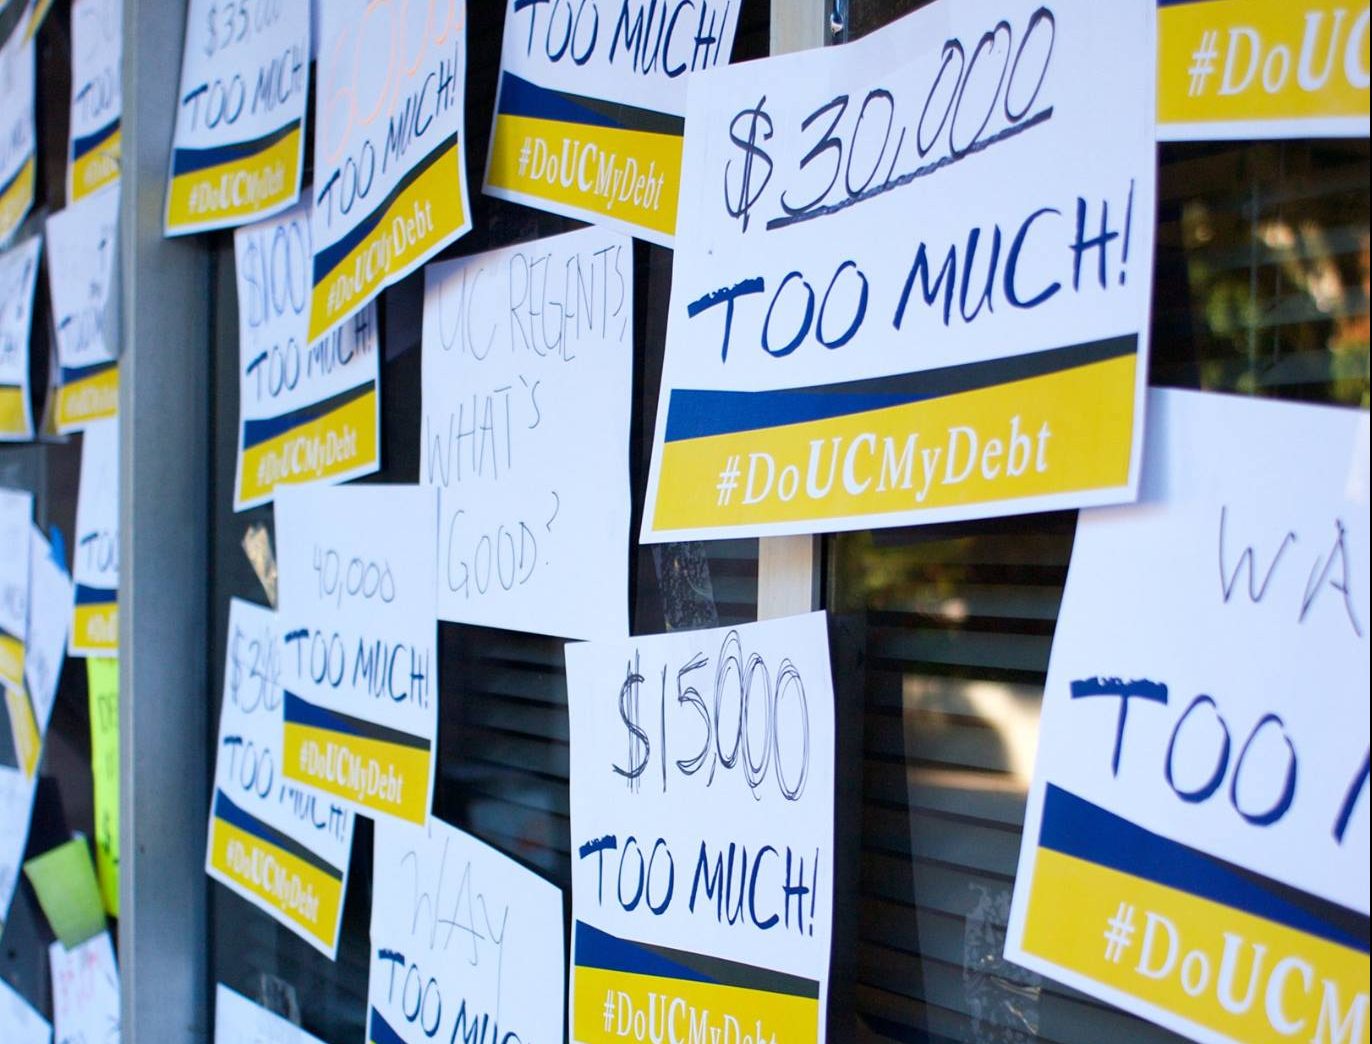 $35,000
TOO MUCH
#DoUCMyDebt
TOO MUCH!
#DoUCMyDebt
TOO MUCH!
#DoUCMyDebt
$30,000
TOO MUCH!
#DoUCMyDebt
#DoUC
$100
TOO MUCH!
#DoUCMyDebt
UC REGENTS,
WHAT'S
GOOD?
40,000
TOO MUCH!
#DoUCMyDebt
TOO MUCH!
#DoUCMyDebt
$15,000
TOO MUCH!
#DoUCMyDebt
WAY
TOO MUC
WA
TOO
#DoUCM